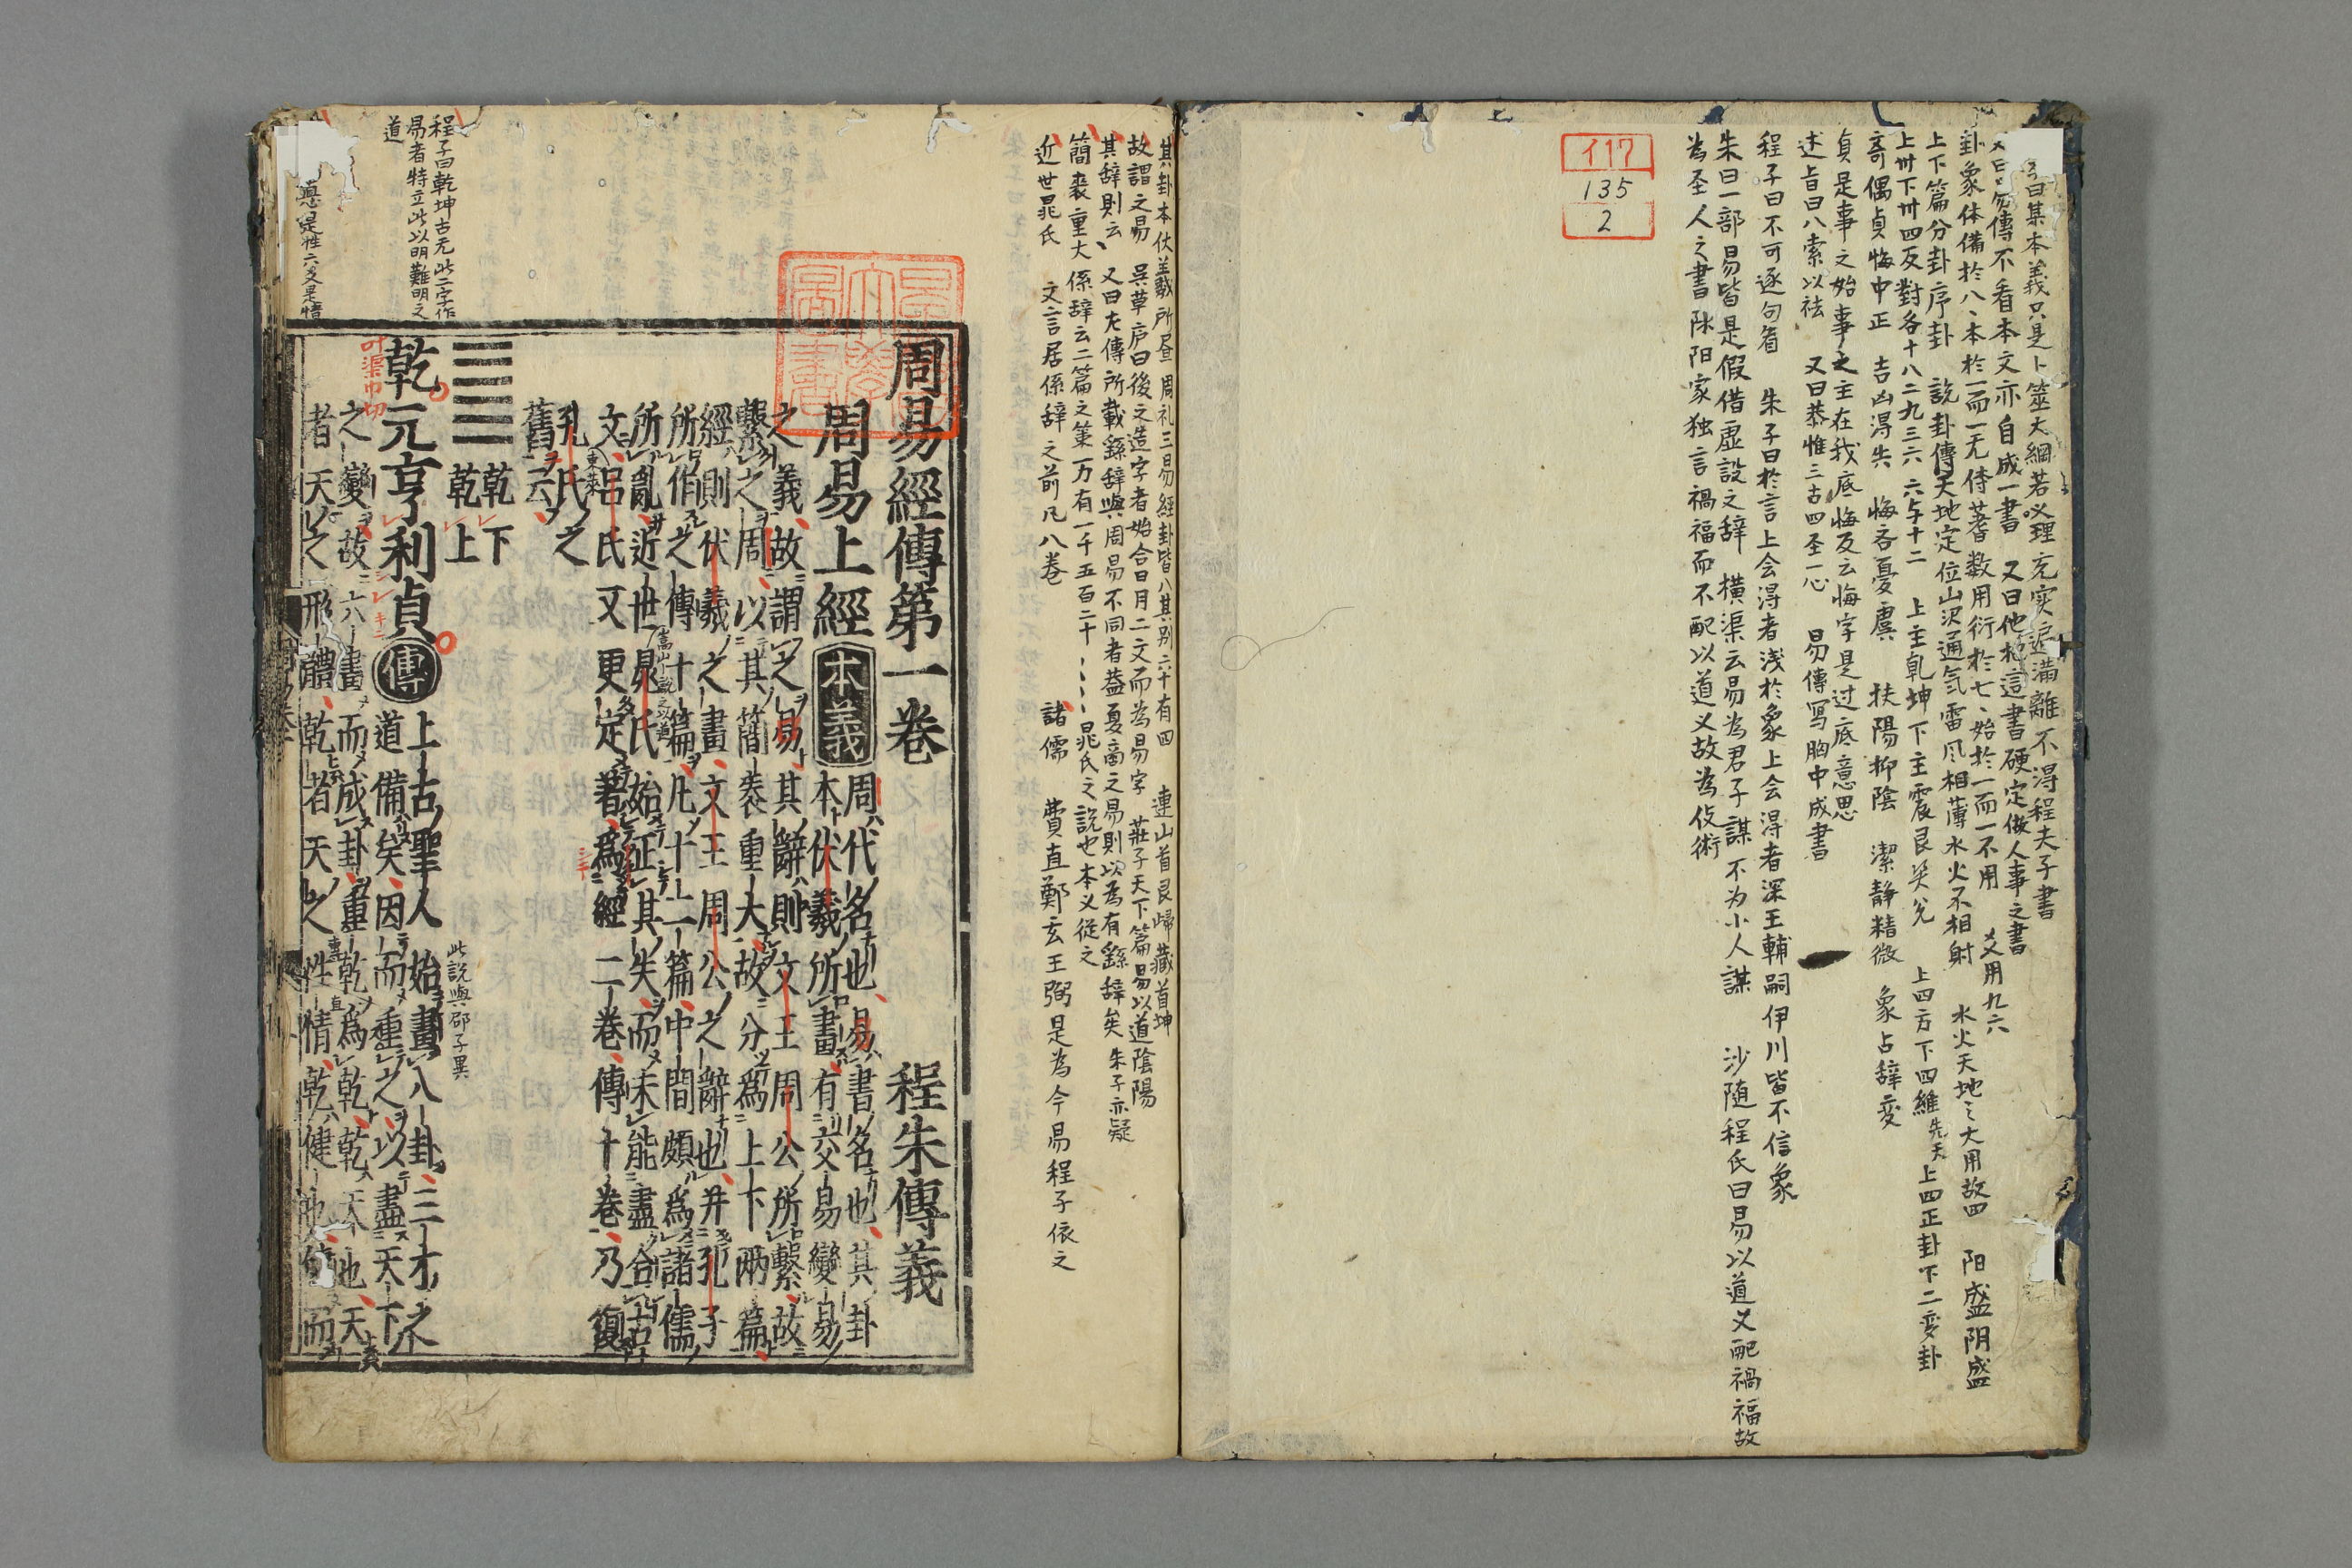 曰集本義只是卜筮大綱若以理充実遠満離不得程夫子書
又曰易傳不看本文亦自成一書 又曰他把這書硬定做人事之書
卦象体備於八、本於一而一无倚蓍数用衍於七、始於一而一不用 爻用九六
上下篇分卦序卦 説卦傳天地定位山沢通気雷风相薄水火不相射 水火天地之大用故四 阳盛阴盛
上卅下卅四反對各十八二九三六 六与十二 上主乾坤下主震艮巽兌 上四方下四維先天上四正卦下二変卦
奇偶貞悔中正 吉凶淂失 悔吝憂虞 扶陽抑陰 潔静精微 象占辞変
貞是事之始事之主在我底悔反云悔字是过底意思
述旨曰八索以祛 又曰恭惟三古四圣一心 易傳写胸中成書
程子曰不可逐句看 朱子曰於言上会淂者浅於象上会淂者深王輔嗣伊川皆不信象
朱曰一部易皆是假借虚設之辞 横渠云易為君子謀不为小人謀 沙随程氏曰易以道义配禍福故
為圣人之書阴阳家独言禍福而不配以道义故為伎術
117
135
2
其卦本伏羲所畫 周礼三易經卦皆八其别六十有四 連山首艮歸藏首坤
故謂之易 吳草庐曰後之造字者始合日月二文而為易字 莊子天下篇易以道陰陽
其辞則云、 又曰左傳所載繇辞與周易不同者蓋夏商之易則以為有繇辞矣 朱子亦疑
簡袠重大 係辞云二篇之策一万有一千五百二十 晁氏之説也本义従之
近世晁氏 文言居係辞之前凡八卷 諸儒 費直鄭玄王弼是為今易程子依之
周易經傳第一卷 程朱傳義
周易上經 本義 周代名也易書名也其卦
本伏羲所畫有交易變易
之義故謂之易其辭則文王周公所繫故
繫之周以其簡袠重大故分爲上下兩篇
經則伏羲之畫文王周公之辭也并孔子
所作之傳十篇凡十二篇中間頗爲諸儒
所亂近世晁氏始正其失而未能盡合古
嵩山説之以道
文呂氏又更定著爲經二卷傳十卷乃復
東萊
孔氏之
舊云
乾下
乾上
此説與邵子異
乾元亨利貞 傳 上古聖人始畫八卦三才之
道備矣因而重之以盡天下
叶渠巾切
之變故六畫而成卦重乾爲乾乾天也天
者天之形體乾者天之性情乾健也健而
程子曰乾坤古无此二字作
易者特立此以明難明之
道
是性六爻是情